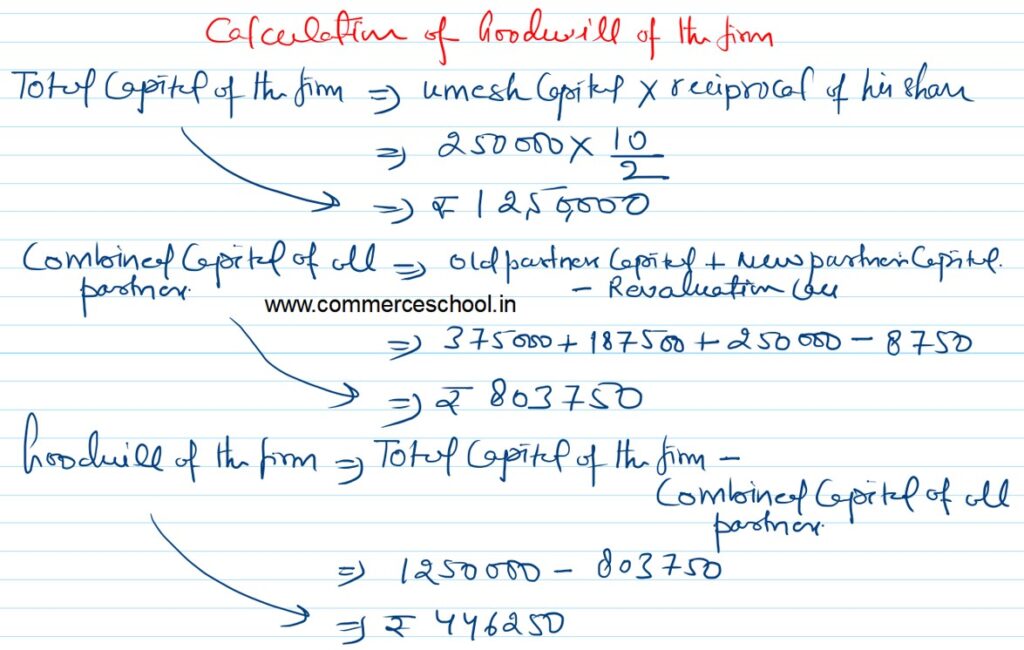 Calculation of Goodwill of the firm
Total Capital of the firm ⇒ Umesh Capital × reciprocal of his share
⇒ 250000 × 10/2
⇒ ₹ 1250,000
Combined Capital of all partner. ⇒ Old partner Capital + New partner Capital.
– Revaluation Loss
www.commerceschool.in
⇒ 375000 + 187500 + 250000 – 8750
⇒ ₹ 803750
Goodwill of the firm ⇒ Total Capital of the firm –
Combined Capital of all partner.
⇒ 1250000 – 803750
⇒ ₹ 446250